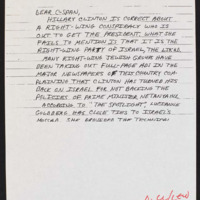 DEAR C-SPAN,
HILLARY CLINTON IS CORRECT ABOUT
A RIGHT-WING CONSPIRACY WHO IS
OUT TO GET THE PRESIDENT. WHAT SHE
FAILS TO MENTION IS THAT IT IS THE
RIGHT-WING PARTY OF ISRAEL, THE LIKUD.
MANY RIGHT-WING JEWISH GROUPS HAVE
BEEN TAKING OUT FULL-PAGE ADS IN THE
MAJOR NEWSPAPERS OF THIS COUNTRY COM-
PLAINING THAT CLINTON HAS TURNED HIS
BACK ON ISRAEL FOR NOT BACKING THE
POLICIES OF PRIME MINISTER NETANYAHU.
ACCORDING TO "THE SPOTLIGHT" LUCIANNE
GOLDBERG HAS CLOSE TIES TO ISRAEL'S
MOSSAD. SHE